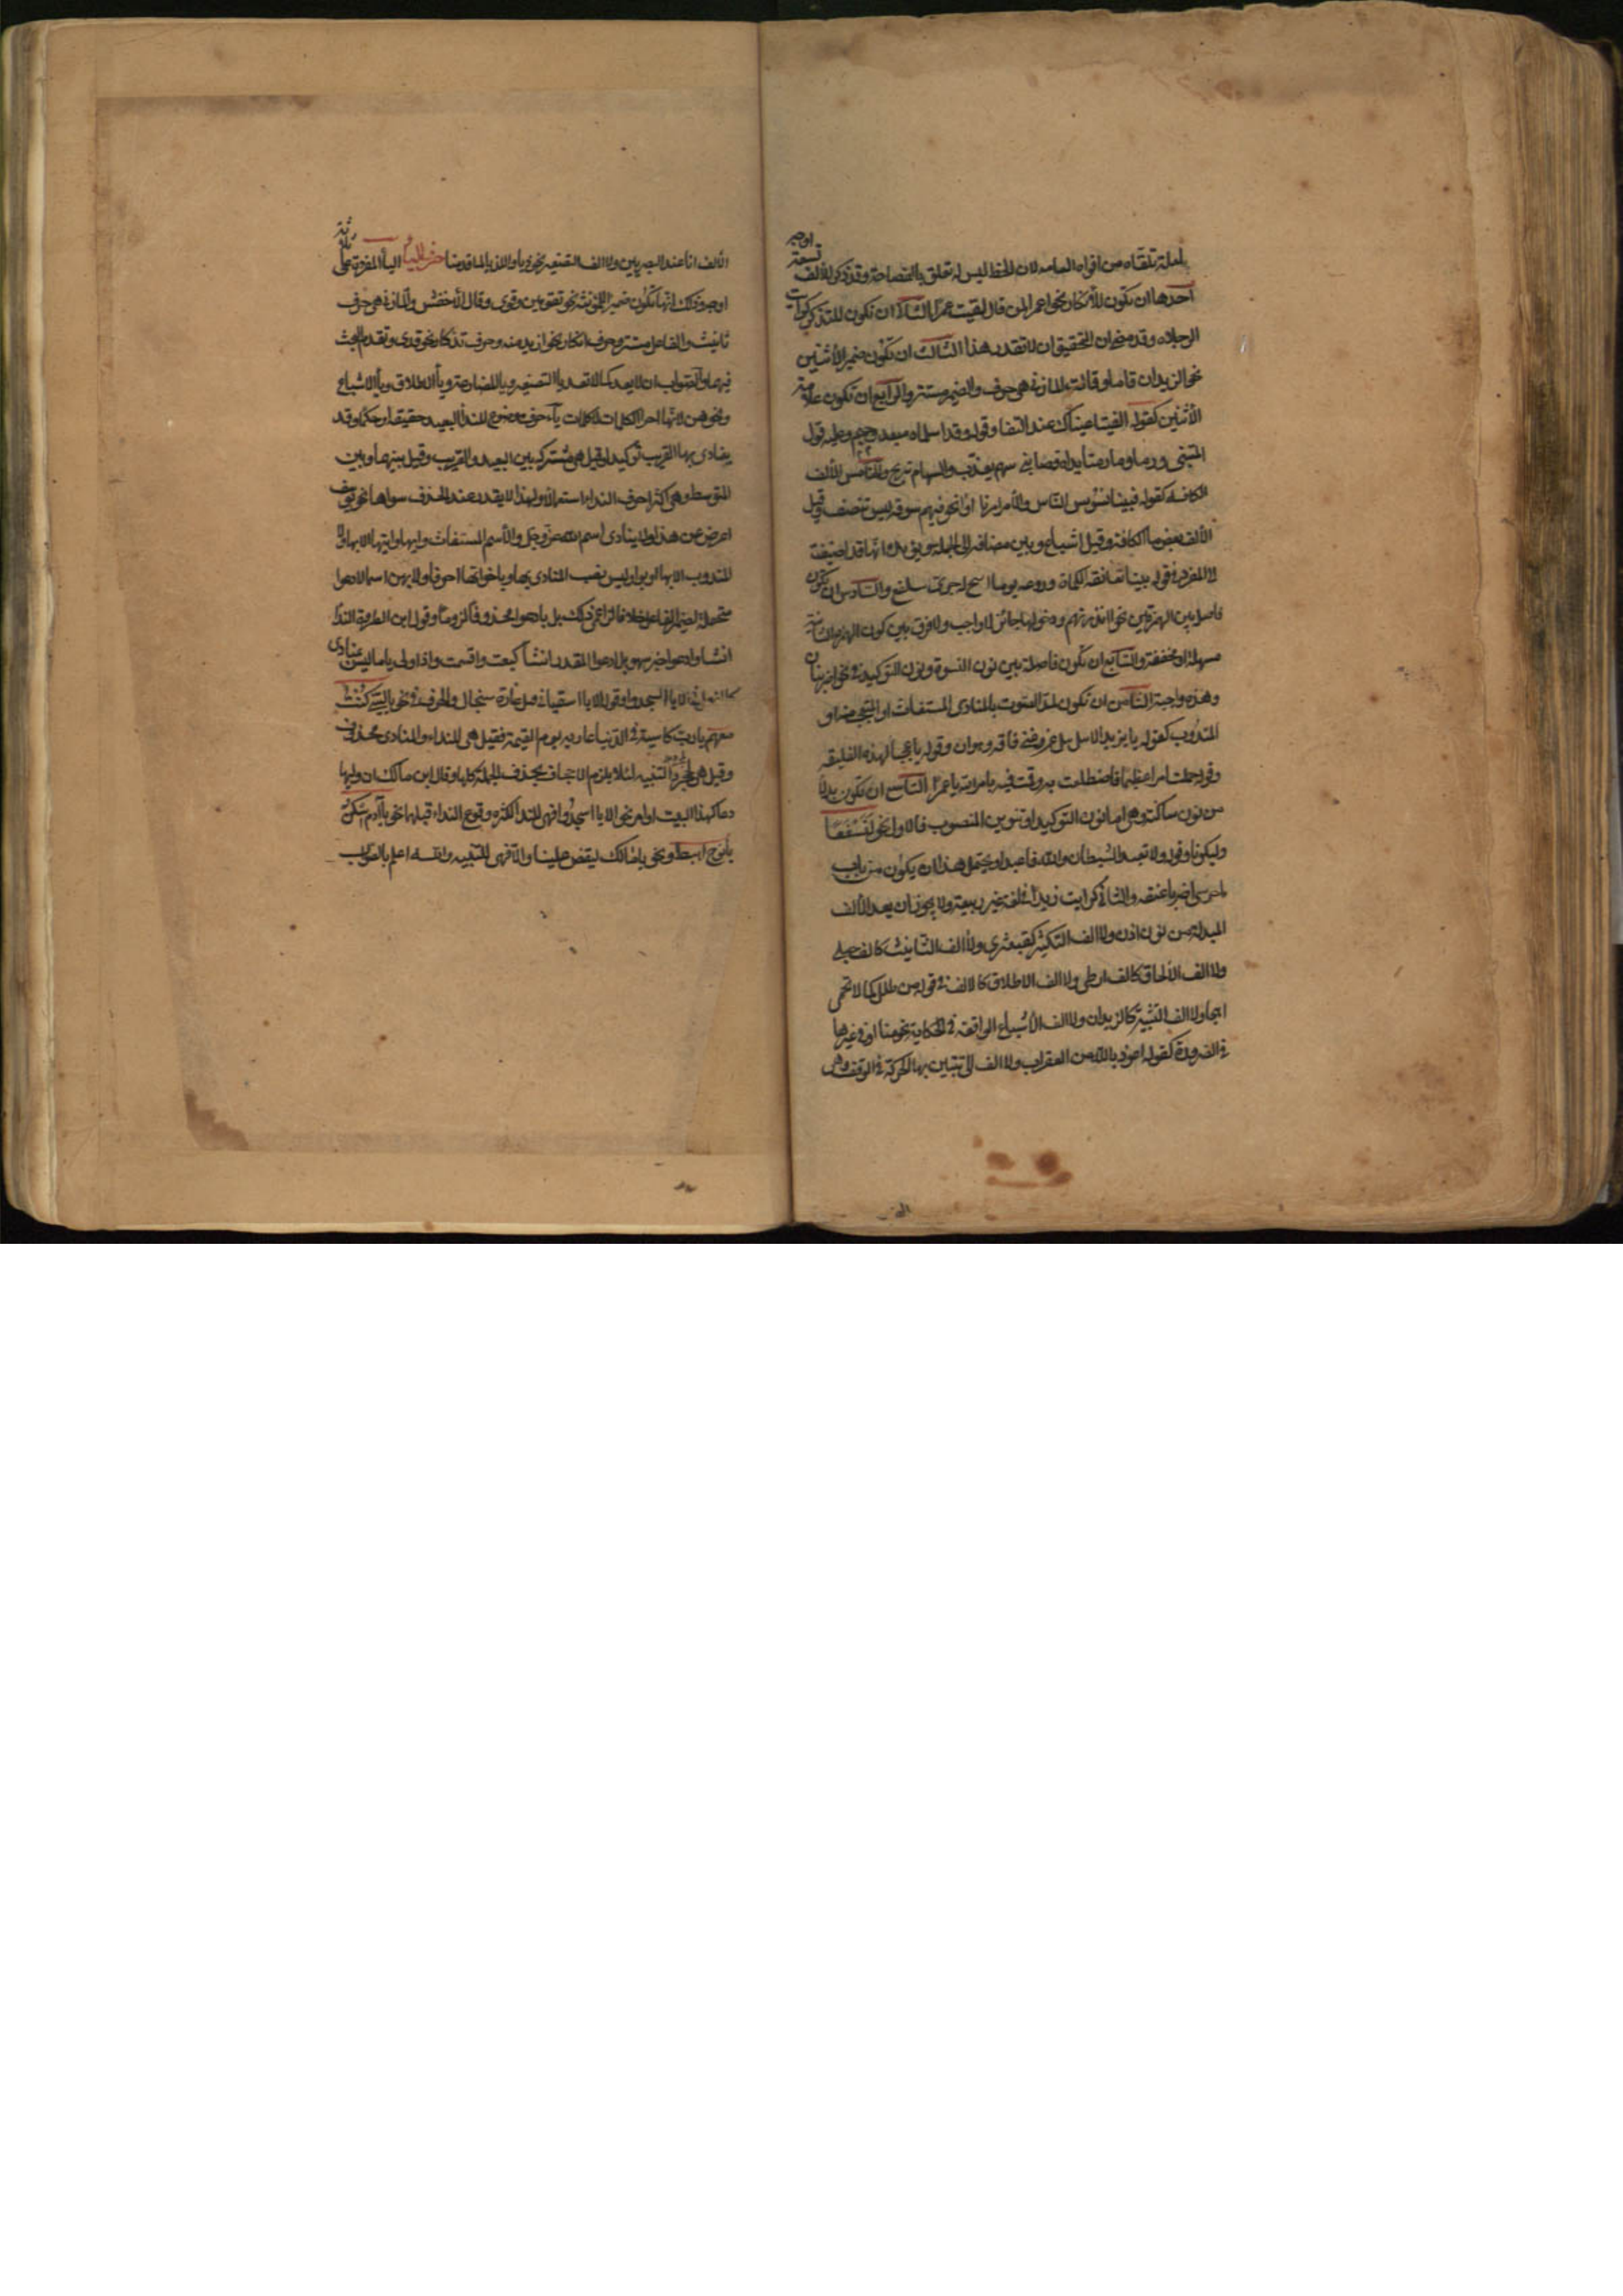 لعله تلقاه من افواه العامة لان الخط ليس له تعلق بالفصاحة وقد ذكر للألف تسعة اوجه
احدها ان تكون للأنكار نحو اعمراه لمن قال لقيت عمرا الثانى ان تكون للتذكر كرأيت
الرجلا وقد مضى ان التحقيق ان لا تعد هذا الثالث ان تكون ضمير الأثنين
نحو الزيدان قاما وقالت المازنى هى حرف والضمير مستتر والرابع ان تكون علامة
الأثنين كقوله الفيتا عيناك عند القفا وقوله وقد اسلماه مبعد وحميم وعليه قول
المتنبى ورما وما رمتا يداه فصابنى سهم يعذب والسهام تريح والخامس الألف
الكافه كقوله فبينا نسوس الناس والأمر امرنا اذا نحن فيهم سوقة ليس ننصف وقيل
الألف بعض ما الكافة وقيل اشباع وبين مضافه الى الجملة ويؤيده انها قد اضيفت
الى المفرد فى قوله بينا تعانقه الكماة وروغه يوما اتيح له جرىء سلفع والسادس ان تكون
فاصلة بين الهمزتين نحو أانذرتهم ودخولها جائز لا واجب ولا فرق بين كون الهمزة الثانية
مسهلة او مخففة والسابع ان تكون فاصلة بين نون النسوة ونون التوكيد فى نحو اضربنان
وهذه واجبة الثامن ان تكون لمد الصوت بالمنادى المستغاث او المتعجب منه او
المندوب كقوله يا يزيدا لامل نيل عز وغنى فاقة وهوان وقوله يا عجبا لهذه الفليقه
وقوله حملت امرا عظيما فاضطلعت به وقمت فيه بامر الله يا عمرا التاسع ان تكون بدلا
من نون ساكنة وهى اما نون التوكيد او تنوين المنصوب فالاول نحو لنسفعا
وليكونا وقوله ولا تعبد الشيطان والله فاعبدا ويحتمل هذا ان يكون من باب
يا حرسى اضربا عنقه والثانى كرأيت زيدا فى لغة غير ربيعة ولا يجوز ان يعد الألف
المبدلة من نون اذن ولا الف التكثير كقبعثرى ولا الف التأنيث كالف حبلى
ولا الف الألحاق كالف ارطى ولا الف الاطلاق كالالف فى قوله من طلل كالاتحمى
انهجا ولا الف التثنية كالزيدان ولا الف الأشباع الواقعة فى الحكاية نحو منا او فى غيرها
فى الضرورة كقوله اعوذ بالله من العقراب ولا الف التى تتبين بها الحركة فى الوقف وهى
الف
الألف انا عند البصريين ولا الف التصغير نحو ذيا واللذيا لما قدمنا حرف الياء الياء المفردة على ثلاثة
اوجه وذلك انها تكون ضمير المؤنثة نحو تقومين وقومى وقال الأخفش والمازنى هى حرف
تأنيث والفاعل مستتر وحرف انكار نحو ازيدنيه وحرف تذكار نحو قدى وتقدم البحث
فيهما والصواب ان لا يعد كما لا تعد يا التصغير ويا المضارعة ويا الاطلاق ويا الاشباع
ونحوهن لانها اجزاء الكلمات لا كلمات يا حرف موضوع لنداء البعيد حقيقة او حكما وقد
ينادى بها القريب توكيدا وقيل هى مشتركة بين البعيد والقريب وقيل بينهما وبين
المتوسط وهى اكثر احرف النداء استعمالا ولهذا لا يقدر عند الحذف سواها نحو يوسف
اعرض عن هذا ولا ينادى اسم الله عز وجل والأسم المستغاث وايها وايتها الا بها ولا
المندوب الا بها او بوا وليس نصب المنادى بها ويا خواتها احرفا ولا بهن اسما لادعوا
متحملة لضمير الفاعل خلافا لزاعمى ذلك بل بادعوا محذوفا لزوما وقول ابن الطراوة النداء
انشا وادعوا خبر سهو بل ادعوا المقدر انشا كبعت واقسمت واذا ولى يا ما ليس بمنادى
كالفعل فى الا يا اسجدوا وقوله الا يا اسقيانى قبل غارة سنجال والحرف فى نحو يا ليتنى كنت
معهم يا رب كاسية فى الدنيا عارية يوم القيمة فقيل هى للنداء والمنادى محذوف
وقيل هى لمجرد التنبيه لئلا يلزم الاجحاف بحذف الجملة كلها وقال ابن مالك ان وليها
دعا كهذا البيت او امر نحو الا يا اسجدوا فهى للنداء لكثرة وقوع النداء قبلهما نحو يا آدم اسكن
يا نوح اهبط ونحو يا مالك ليقض علينا والا فهى للتنبيه والله اعلم بالصواب